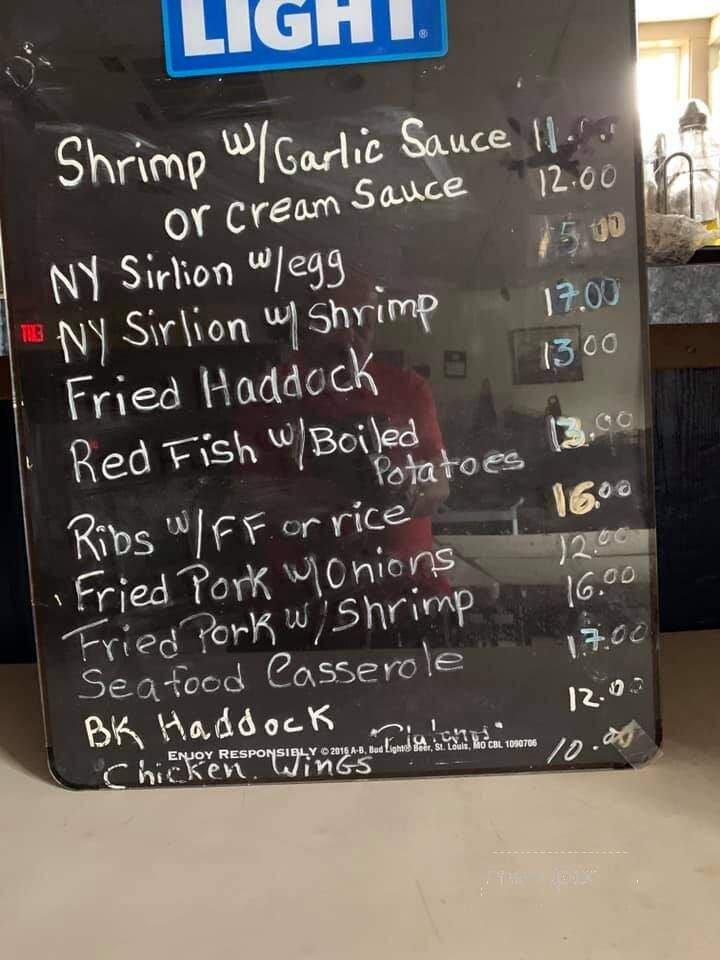 LIGHT
Shrimp w/Garlic Sauce
or cream Sauce 12.00
NY Sirlion w/egg 15.00
NY Sirlion w/ Shrimp 17.00
Fried Haddock 13.00
Red Fish w/Boiled 13.00
Potatoes
Ribs w/FF or rice 16.00
Fried Pork w/Onions 12.00
Fried Pork w/Shrimp 16.00
Seafood Casserole 17.00
BK Haddock 12.00
Platanos
ENJOY RESPONSIBLY © 2016 A-B, Bud Light® Beer, St. Louis, MO CBL 1090706
Chicken Wings 10.00